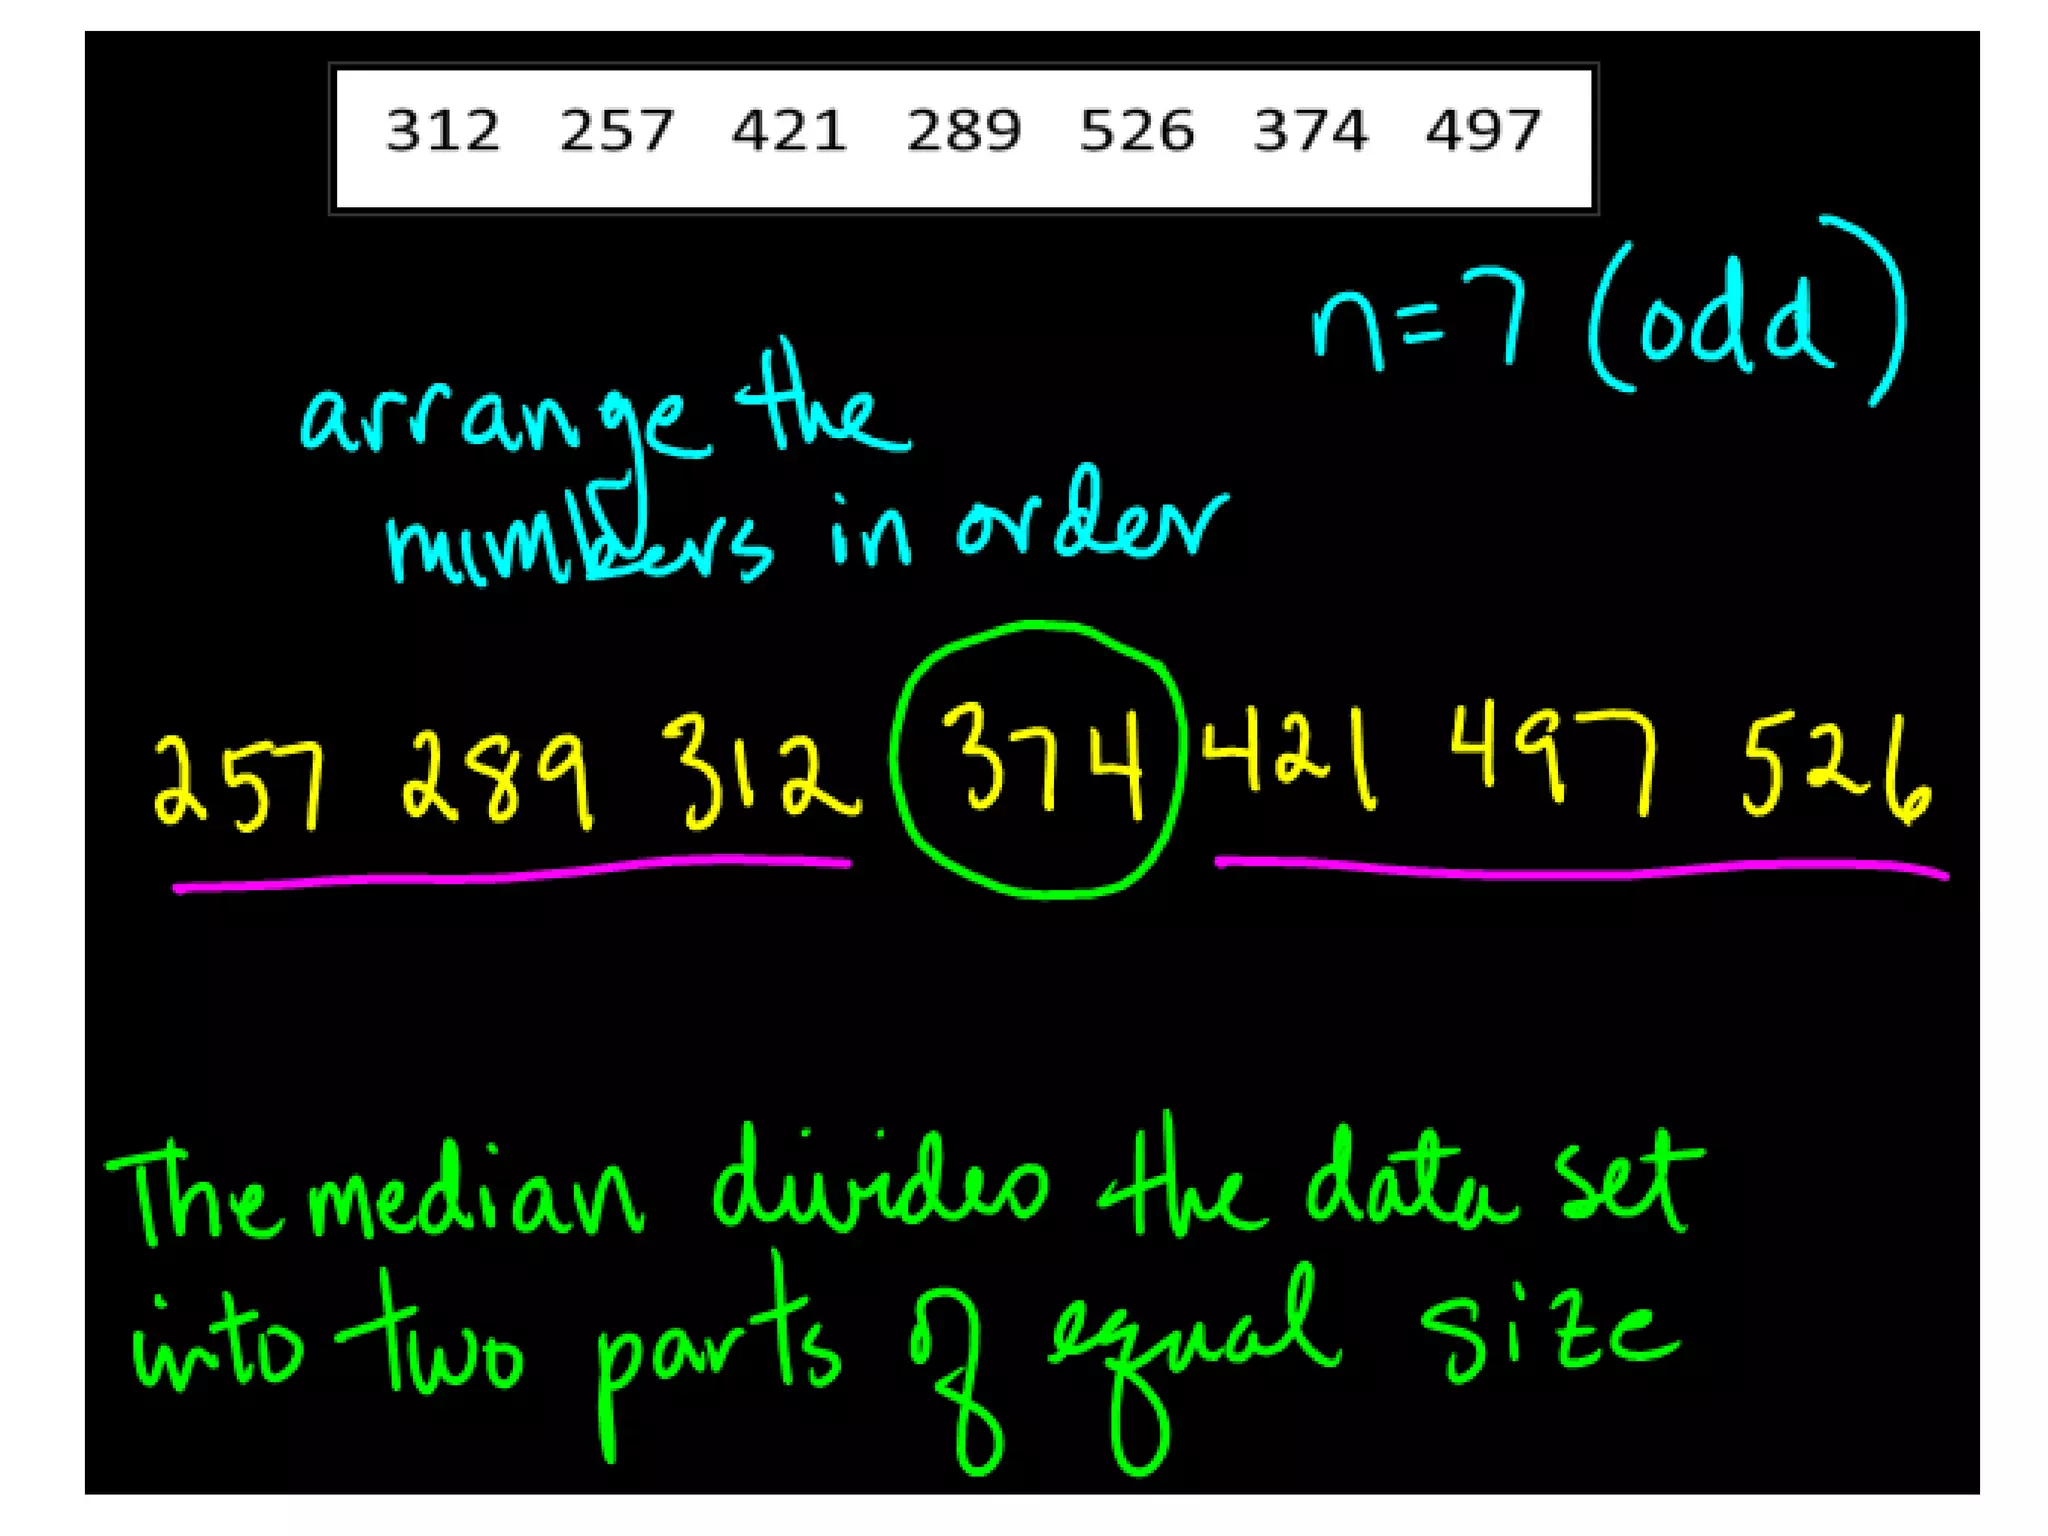 312 257 421 289 526 374 497
n=7 (odd)
arrange the
numbers in order
257 289 312 374 421 497 526
The median divides the data set
into two parts of equal size